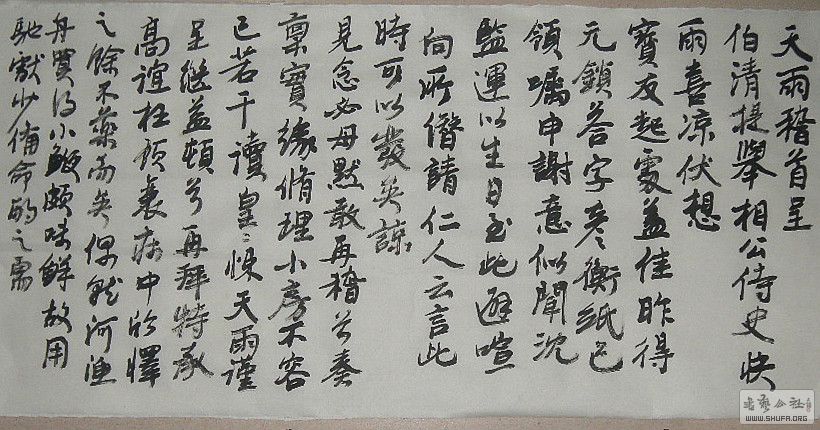 天雨稽首呈
伯清提舉相公侍史快
雨喜凉伏想
寶友起處益佳昨得
元鎖荅字彥衡紙已
領囑申謝意似聞沈
監運以生日至此避喧
向所僭請仁人云言此
時可以發英諒
見念必毋默敢再稽首奏
稟寶緣脩理小房不容
已若干讀皇〻悚天雨謹
呈繼益頓首再拜特承
高誼枉顧衰病中的懌
之餘不藥而矣偶就河漁
舟買得小鮑頗味鮮故用
馳獻少備命酌之需
書藝公社
WWW.SHUFA.ORG